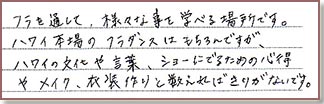 フラを通して、様々な事を学べる場所です。
ハワイ本場のフラダンスはもちろんですが、
ハワイの文化や言葉、ショーにでるための心得
やメイク、衣装作りと数えればきりがないです。